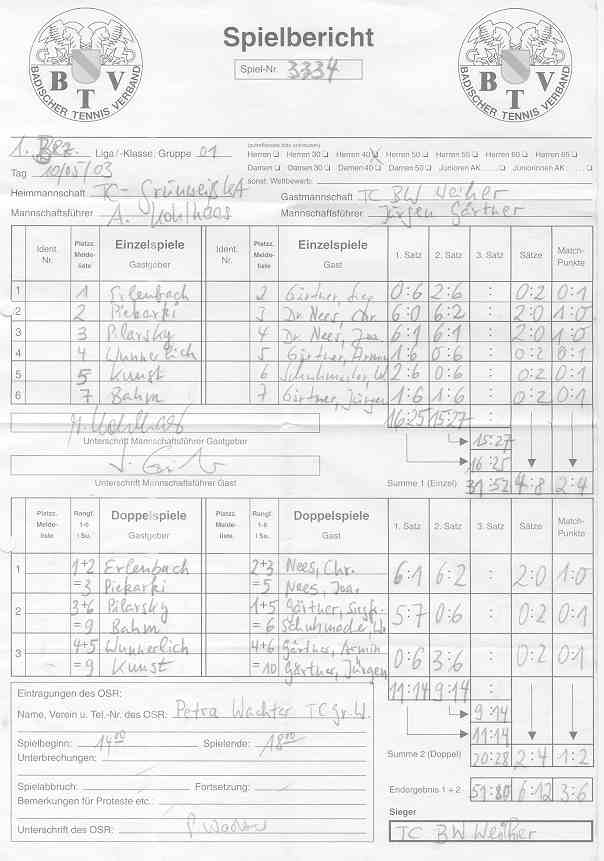 BADISCHER TENNIS VERBAND
B T V
Spielbericht
Spiel-Nr. 3334
BADISCHER TENNIS VERBAND
B T V
(zutreffendes bitte ankreuzen)
1. Bez. Liga/-Klasse, Gruppe 01 Herren Herren 30 Herren 40 X Herren 50 Herren 55 Herren 60 Herren 65
Tag 10/05/03 Damen Damen 30 Damen 40 Damen 50 Junioren AK Juniorinnen AK
sonst. Wettbewerb:
Heimmannschaft TC- Gastmannschaft TC BW Weiher
Mannschaftsführer A. Kohlhaas Mannschaftsführer Jürgen Gärtner
Ident. Nr. Platzz. Meldeliste Einzelspiele Gastgeber Ident. Nr. Platzz. Meldeliste Einzelspiele Gast 1. Satz 2. Satz 3. Satz Sätze Match-Punkte
1 1 Erlenbach 2 Gärtner, 0:6 2:6 : 0:2 0:1
2 2 Piekarki 3 Dr. Nees, Chr. 6:0 6:2 : 2:0 1:0
3 3 Pilarsky 4 Dr. Nees, Joa. 6:1 6:1 : 2:0 1:0
4 4 Wunnerlich 5 Gärtner, Armin 1:6 0:6 : 0:2 0:1
5 5 Kunst 6 Schuhmacher, W. 2:6 0:6 : 0:2 0:1
6 7 Bahm 7 Gärtner, Jürgen 1:6 1:6 : 0:2 0:1
16:25 15:27
Unterschrift Mannschaftsführer Gastgeber
15:27
16:25
Unterschrift Mannschaftsführer Gast Summe 1 (Einzel) 31:52 4:8 2:4
Platzz. Meldeliste Rangf. 1-6 i Su. Doppelspiele Gastgeber Platzz. Meldeliste Rangf. 1-6 i Su. Doppelspiele Gast 1. Satz 2. Satz 3. Satz Sätze Match-Punkte
1 1+2 Erlenbach 2+3 Nees, Chr. 6:1 6:2 : 2:0 1:0
=3 Piekarki =5 Nees, Joa.
2 3+6 Pilarsky 1+5 Gärtner, 5:7 0:6 : 0:2 0:1
=9 Bahm =6 Schuhmacher, W.
3 4+5 Wunnerlich 4+6 Gärtner, Armin 0:6 3:6 : 0:2 0:1
=9 Kunst =10 Gärtner, Jürgen
11:14 9:14
Eintragungen des OSR:
Name, Verein u. Tel.-Nr. des OSR: Petra Wachter TC Gr. W. 9:14
11:14
Spielbeginn: 14 00 Spielende: 18 00
Unterbrechungen: Summe 2 (Doppel) 20:28 2:4 1:2
Spielabbruch: Fortsetzung:
Bemerkungen für Proteste etc.: Endergebnis 1 + 2 51:80 6:12 3:6
Sieger
Unterschrift des OSR: P. Wachter TC BW Weiher